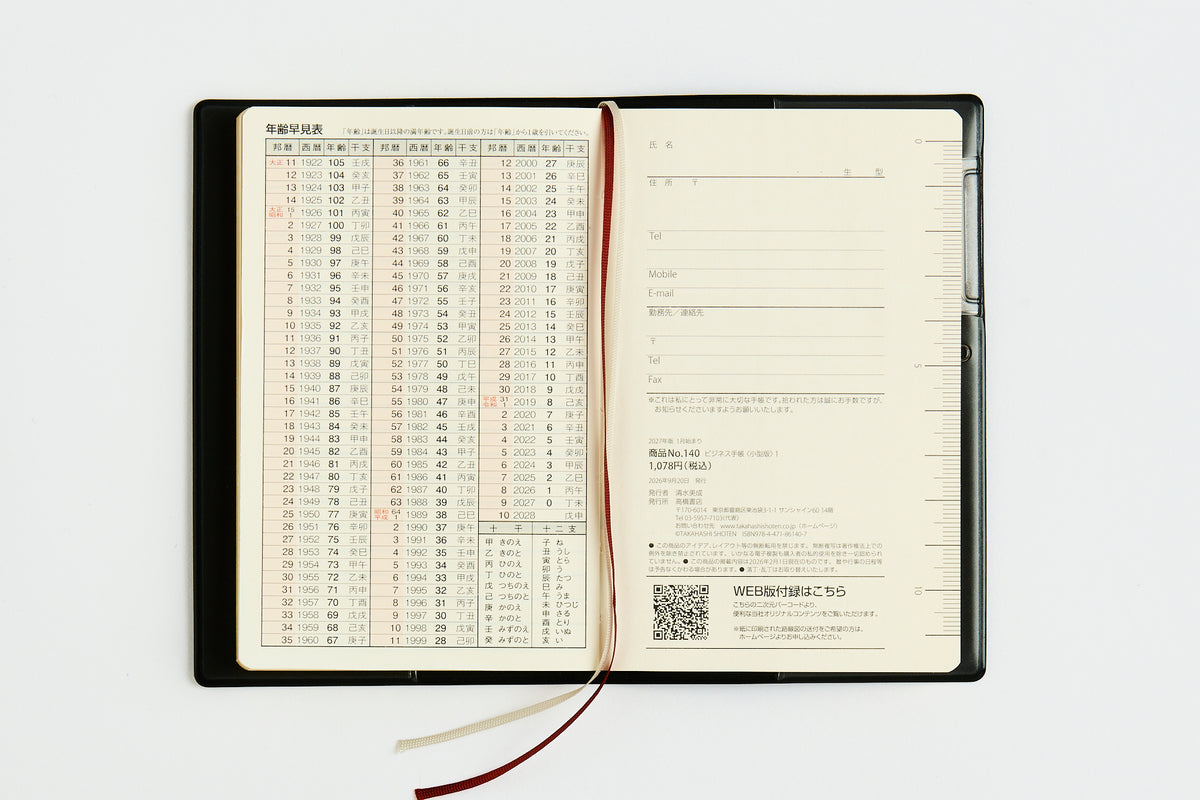 年齢早見表 「年齢」は誕生日以降の満年齢です。誕生日前の方は「年齢」から1歳を引いてください。
邦暦 西暦 年齢 干支
大正 11 1922 105 壬戌
12 1923 104 癸亥
13 1924 103 甲子
14 1925 102 乙丑
大正 15
昭和 1 1926 101 丙寅
2 1927 100 丁卯
3 1928 99 戊辰
4 1929 98 己巳
5 1930 97 庚午
6 1931 96 辛未
7 1932 95 壬申
8 1933 94 癸酉
9 1934 93 甲戌
10 1935 92 乙亥
11 1936 91 丙子
12 1937 90 丁丑
13 1938 89 戊寅
14 1939 88 己卯
15 1940 87 庚辰
16 1941 86 辛巳
17 1942 85 壬午
18 1943 84 癸未
19 1944 83 甲申
20 1945 82 乙酉
21 1946 81 丙戌
22 1947 80 丁亥
23 1948 79 戊子
24 1949 78 己丑
25 1950 77 庚寅
26 1951 76 辛卯
27 1952 75 壬辰
28 1953 74 癸巳
29 1954 73 甲午
30 1955 72 乙未
31 1956 71 丙申
32 1957 70 丁酉
33 1958 69 戊戌
34 1959 68 己亥
35 1960 67 庚子
邦暦 西暦 年齢 干支
36 1961 66 辛丑
37 1962 65 壬寅
38 1963 64 癸卯
39 1964 63 甲辰
40 1965 62 乙巳
41 1966 61 丙午
42 1967 60 丁未
43 1968 59 戊申
44 1969 58 己酉
45 1970 57 庚戌
46 1971 56 辛亥
47 1972 55 壬子
48 1973 54 癸丑
49 1974 53 甲寅
50 1975 52 乙卯
51 1976 51 丙辰
52 1977 50 丁巳
53 1978 49 戊午
54 1979 48 己未
55 1980 47 庚申
56 1981 46 辛酉
57 1982 45 壬戌
58 1983 44 癸亥
59 1984 43 甲子
60 1985 42 乙丑
61 1986 41 丙寅
62 1987 40 丁卯
63 1988 39 戊辰
昭和 64
平成 1 1989 38 己巳
2 1990 37 庚午
3 1991 36 辛未
4 1992 35 壬申
5 1993 34 癸酉
6 1994 33 甲戌
7 1995 32 乙亥
8 1996 31 丙子
9 1997 30 丁丑
10 1998 29 戊寅
11 1999 28 己卯
邦暦 西暦 年齢 干支
12 2000 27 庚辰
13 2001 26 辛巳
14 2002 25 壬午
15 2003 24 癸未
16 2004 23 甲申
17 2005 22 乙酉
18 2006 21 丙戌
19 2007 20 丁亥
20 2008 19 戊子
21 2009 18 己丑
22 2010 17 庚寅
23 2011 16 辛卯
24 2012 15 壬辰
25 2013 14 癸巳
26 2014 13 甲午
27 2015 12 乙未
28 2016 11 丙申
29 2017 10 丁酉
30 2018 9 戊戌
平成 31
令和 1 2019 8 己亥
2 2020 7 庚子
3 2021 6 辛丑
4 2022 5 壬寅
5 2023 4 癸卯
6 2024 3 甲辰
7 2025 2 乙巳
8 2026 1 丙午
9 2027 0 丁未
10 2028 戊申
十干
甲 きのえ
乙 きのと
丙 ひのえ
丁 ひのと
戊 つちのえ
己 つちのと
庚 かのえ
辛 かのと
壬 みずのえ
癸 みずのと
十二支
子 ね
丑 うし
寅 とら
卯 う
辰 たつ
巳 み
午 うま
未 ひつじ
申 さる
酉 とり
戌 いぬ
亥 い
氏 名
生 型
住 所 〒
Tel
Mobile
E-mail
勤務先／連絡先
〒
Tel
Fax
※これは私にとって非常に大切な手帳です。拾われた方は誠にお手数ですが、
お知らせくださいますようお願いいたします。
2027年版 1月始まり
商品No.140 ビジネス手帳〈小型版〉1
1,078円（税込）
2026年9月20日 発行
発行者 清水美成
発行所 高橋書店
〒170-6014 東京都豊島区東池袋3-1-1 サンシャイン60 14階
Tel 03-5957-7103(代表)
お問い合わせ先 www.takahashishoten.co.jp（ホームページ）
©TAKAHASHI SHOTEN ISBN978-4-471-86140-7
● この商品のアイデア、レイアウト等の無断転用を禁じます。 無断複写は著作権法上での
例外を除き禁止されています。 いかなる電子複製も購入者の私的使用を除き一切認められ
ていません。● この商品の掲載内容は2026年2月1日現在のものです。 暦や行事の日程等
は予告なくかわる場合があります。● 落丁・乱丁はお取り替えいたします。
WEB版付録はこちら
こちらの二次元バーコードより、
便利な当社オリジナルコンテンツをご覧いただけます。
※紙に印刷された路線図の送付をご希望の方は、
ホームページよりお申し込みください。
0
5
10